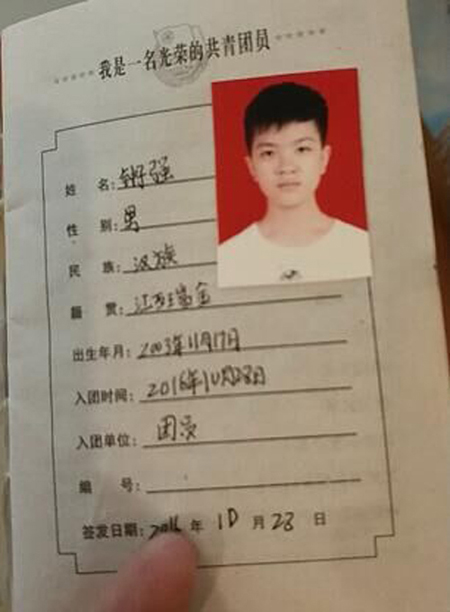 我是一名光荣的共青团员
姓 名: 强
性 别: 男
民 族: 汉族
籍 贯: 江西瑞金
出生年月: 2003年11月17日
入团时间: 2016年10月28日
入团单位: 团员
编 号:
签发日期: 2016 年 10 月 28 日